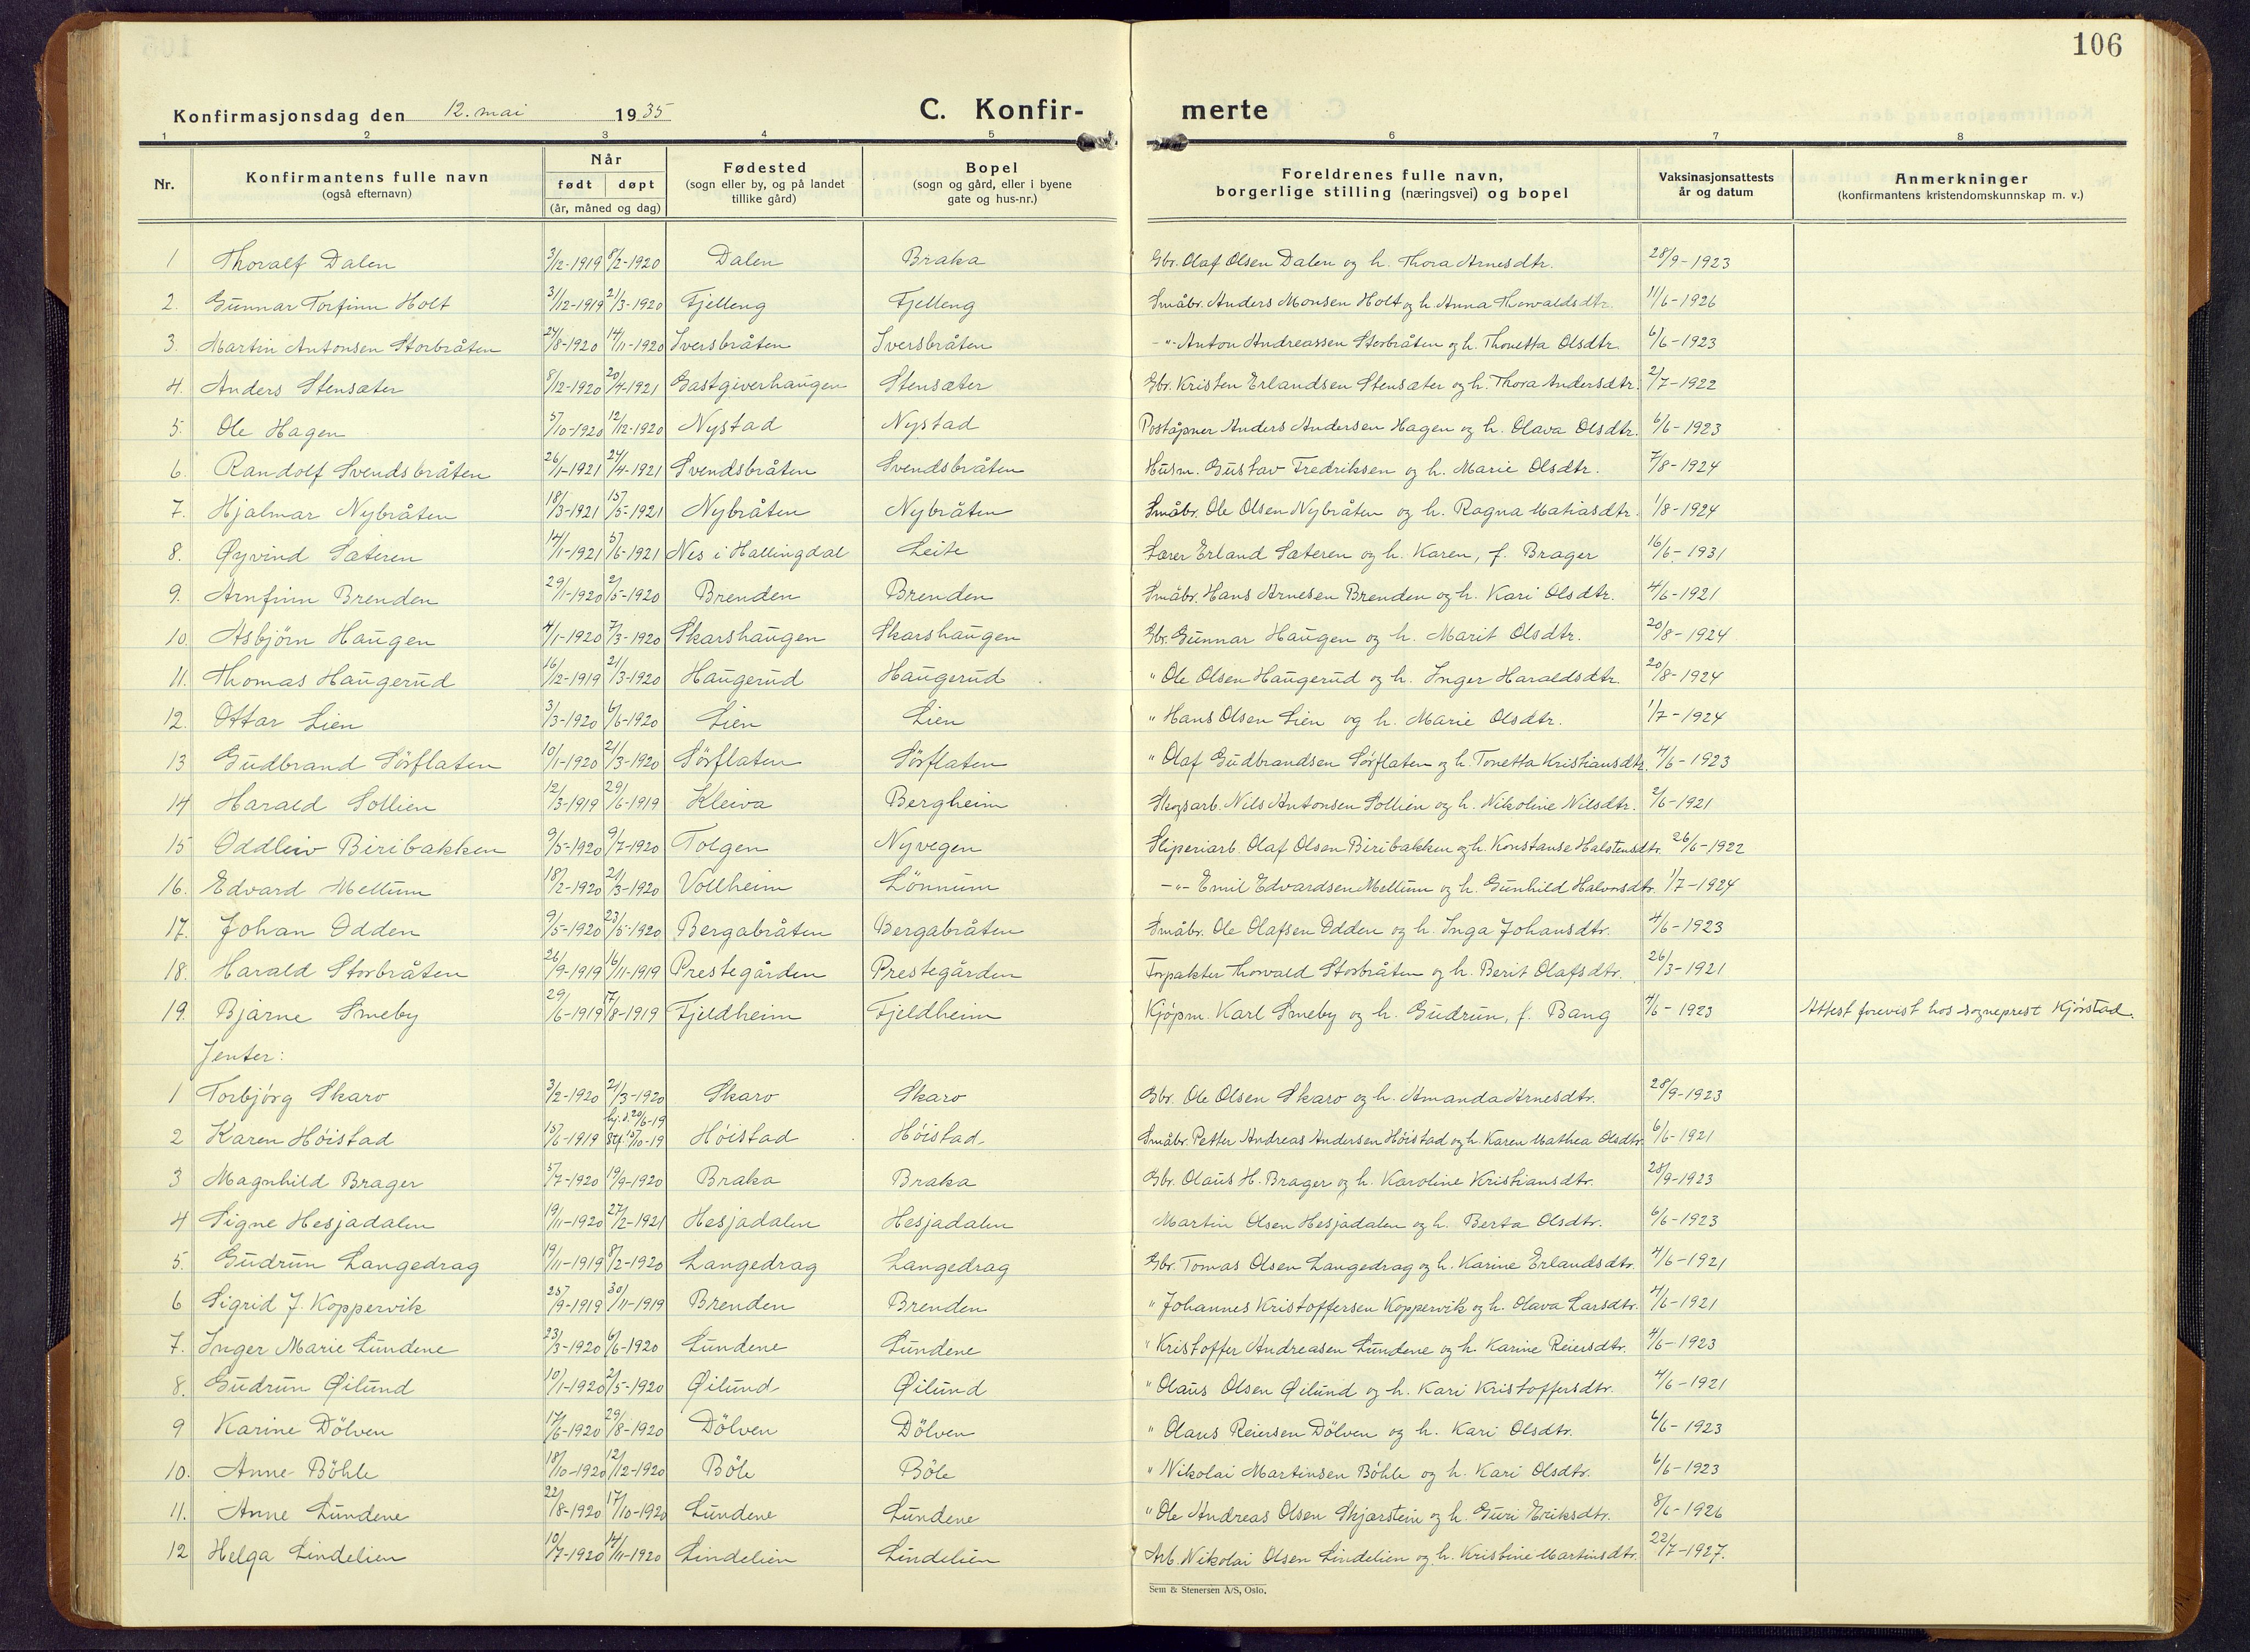 106
Konfirmasjonsdag den 12. mai 1935 C. Konfir- merte
1 2 3 4 5 6 7 8
Nr. Konfirmantens fulle navn (også efternavn) Når født døpt (år, måned og dag) Fødested (sogn eller by, og på landet tillike gård) Bopel (sogn og gård, eller i byene gate og hus-nr.) Foreldrenes fulle navn, borgerlige stilling (næringsvei) og bopel Vaksinasjonsattests år og datum Anmerkninger (konfirmantens kristendomskunnskap m. v.)
1 Thoralf Dalen 3/12-1919 8/2-1920 Dalen Braka Gbr. Olaf Olsen Dalen og h. Thora Arnesdtr. 28/9-1923
2. Gunnar Torfinn Holt 31/12-1919 21/3-1920 Fjelleng Fjelleng Småbr. Anders Monsen Holt og h. Anna Thorvaldsdtr. 11/6-1926
3. Martin Antonsen Storbråten 24/8-1920 14/11-1920 Iversbråten Iversbråten -"- Anton Andreassen Storbråten og h. Thonetta Olsdtr. 6/6-1923
4. Anders Stensæter 8/12-1920 20/4-1921 Gastgiverhaugen Stensæter Gbr. Kristen Erlandsen Stensæter og h. Thora Andersdtr. 2/7-1922
5. Ole Hagen 5/10-1920 12/12-1920 Nystad Nystad Poståpner Anders Andersen Hagen og h. Olava Olsdtr. 6/6-1923
6. Randolf Svendsbråten 26/1-1921 24/4-1921 Svendsbråten Svendsbråten Husm. Gustav Fredriksen og h. Marie Olsdtr. 7/8-1924
7. Hjalmar Nybråten 18/3-1921 15/5-1921 Nybråten Nybråten Småbr. Ole Olsen Nybråten og h. Ragna Matiasdtr. 1/8-1924
8. Øyvind Sæteren 14/1-1921 5/6-1921 Nes i Hallingdal Leite Lærer Erland Sæteren og h. Karen, f. Brager 16/6-1931
9. Arnfinn Brenden 29/1-1920 2/5-1920 Brenden Brenden Småbr. Hans Arnesen Brenden og h. Kari Olsdtr. 4/6-1921
10. Asbjørn Haugen 4/1-1920 7/3-1920 Skarshaugen Skarshaugen Gbr. Gunnar Haugen og h. Marit Olsdtr. 20/8-1924
11. Thomas Haugerud 16/12-1919 21/3-1920 Haugerud Haugerud " Ole Olsen Haugerud og h. Inger Haraldsdtr. 20/8-1924
12. Ottar Lien 3/3-1920 6/6-1920 Lien Lien " Hans Olsen Lien og h. Marie Olsdtr. 1/7-1924
13 Gudbrand Sörflaten 10/1-1920 21/3-1920 Sörflaten Sörflaten " Olaf Gudbrandsen Sörflaten og h. Tonetta Kristiansdtr. 4/6-1923
14 Harald Sollien 12/3-1919 29/6-1919 Kleiva Bergheim Skogsarb. Nils Antonsen Sollien og h. Nikoline Nilsdtr. 2/6-1921
15 Oddleiv Biribakken 9/5-1920 9/7-1920 Tolgen Nyvegen Sliperiarb. Olaf Olsen Biribakken og h. Konstanse Halstensdtr. 26/6-1922
16. Edvard Mellum 18/2-1920 21/3-1920 Vollheim Lönnum -"- Emil Edvardsen Mellum og h. Gunhild Halvorsdtr. 1/7-1924
17. Johan Odden 9/5-1920 23/5-1920 Bergabråten Bergabråten Småbr. Ole Olafsen Odden og h. Inga Johansdtr. 4/6-1923
18. Harald Storbråten 26/9-1919 16/11-1919 Prestegården Prestegården Forpakter Thorvald Storbråten og h. Berit Olafsdtr. 26/3-1921
19. Bjarne Smeby 29/6-1919 17/8-1919 Fjeldheim Fjeldheim Kjøpm. Karl Smeby og h. Gudrun, f. Bang 4/6-1923 Attest forevist hos sogneprest Kjörstad.
Jenter:
1 Torbjörg Skaro 3/2-1920 21/3-1920 Skaro Skaro Gbr. Ole Olsen Skaro og h. Amanda Arnesdtr. 28/9-1923
2 Karen Höistad 15/6-1919 hj.d. 20/6-19 stf. 5/10-19 Höistad Höistad Småbr. Petter Andreas Andersen Höistad og h. Karen Mathea Olsdtr. 6/6-1921
3 Magnhild Brager 5/7-1920 19/9-1920 Braka Braka Gbr. Olaus H. Brager og h. Karoline Kristiansdtr. 28/9-1923
4 Signe Hesjadalen 19/11-1920 27/2-1921 Hesjadalen Hesjadalen Martin Olsen Hesjadalen og h. Berta Olsdtr. 6/6-1923
5. Gudrun Langedrag 19/11-1919 8/2-1920 Langedrag Langedrag Gbr. Tomas Olsen Langedrag og h. Karine Erlandsdtr. 4/6-1921
6 Sigrid J. Koppervik 25/9-1919 30/11-1919 Brenden Brenden " Johannes Kristoffersen Koppervik og h. Olava Larsdtr. 4/6-1921
7. Inger Marie Lundene 23/3-1920 6/6-1920 Lundene Lundene " Kristoffer Andreasen Lundene og h. Karine Reiersdtr. 4/6-1923
8. Gudrun Øilund 10/1-1920 2/5-1920 Øilund Øilund " Olaus Olsen Øilund og h. Kari Kristoffersdtr. 4/6-1921
9 Karine Dölven 17/6-1920 29/8-1920 Dölven Dölven " Olaus Reiersen Dölven og h. Kari Olsdtr. 6/6-1923
10. Anne Böhle 18/10-1920 12/12-1920 Böle Böle " Nikolai Martinsen Böhle og h. Kari Olsdtr. 6/6-1923
11. Anne Lundene 22/8-1920 17/10-1920 Lundene Lundene " Ole Andreas Olsen Skjærstein og h. Guri Eriksdtr. 8/6-1926
12 Helga Lindelien 10/7-1920 14/11-1920 Lindelien Lindelien Arb. Nikolai Olsen Lindelien og h. Kristine Martinsdtr. 22/7-1927.
Sem & Stenersen A/S, Oslo.